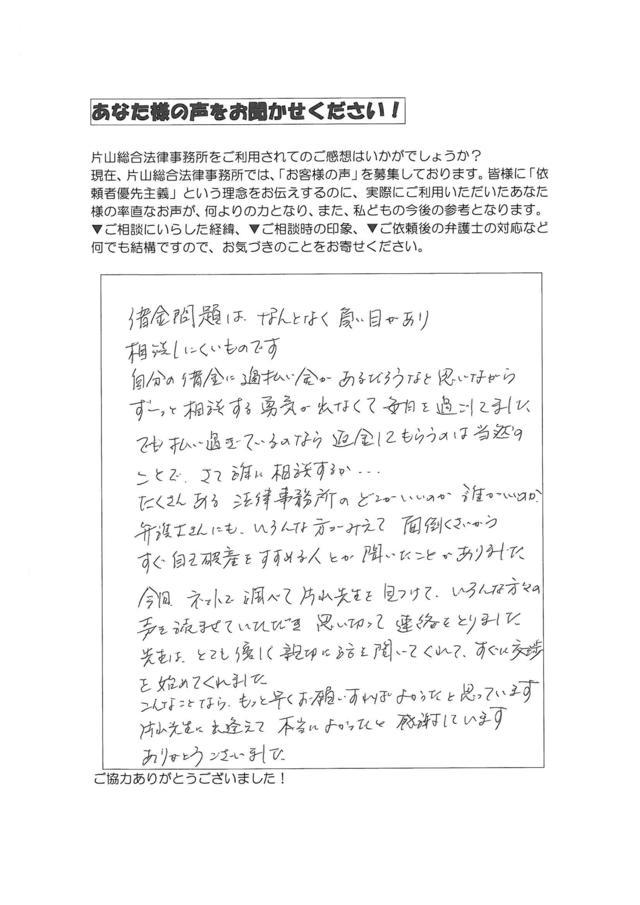 あなた様の声をお聞かせください！
片山総合法律事務所をご利用されてのご感想はいかがでしょうか？
現在、片山総合法律事務所では、「お客様の声」を募集しております。皆様に「依
頼者優先主義」という理念をお伝えするのに、実際にご利用いただいたあなた
様の率直なお声が、何よりの力となり、また、私どもの今後の参考となります。
▼ご相談にいらした経緯、▼ご相談時の印象、▼ご依頼後の弁護士の対応など
何でも結構ですので、お気づきのことをお寄せください。
借金問題は、なんとなく負い目があり
相談しにくいものです
自分の借金に過払い金があるだろうなと思いながら
ずーっと相談する勇気が出なくて毎日を過ごしてました
でも払い過ぎているのなら返金してもらうのは当然の
ことで、さて誰に相談するか…
たくさんある法律事務所のどこがいいのか誰がいいのか
弁護士さんにも、いろんな方がみえて面倒くさいから
すぐ自己破産をすすめる人とか聞いたことがありました
今回、ネットで調べて片山先生を見つけて、いろんな方々の
声を読ませていただき思い切って連絡をとりました
先生は、とても優しく親切に話を聞いてくれて、すぐに交渉
を始めてくれました
こんなことなら、もっと早くお願いすればよかったと思っています
片山先生に出逢えて本当によかったと感謝しています
ありがとうございました
ご協力ありがとうございました！